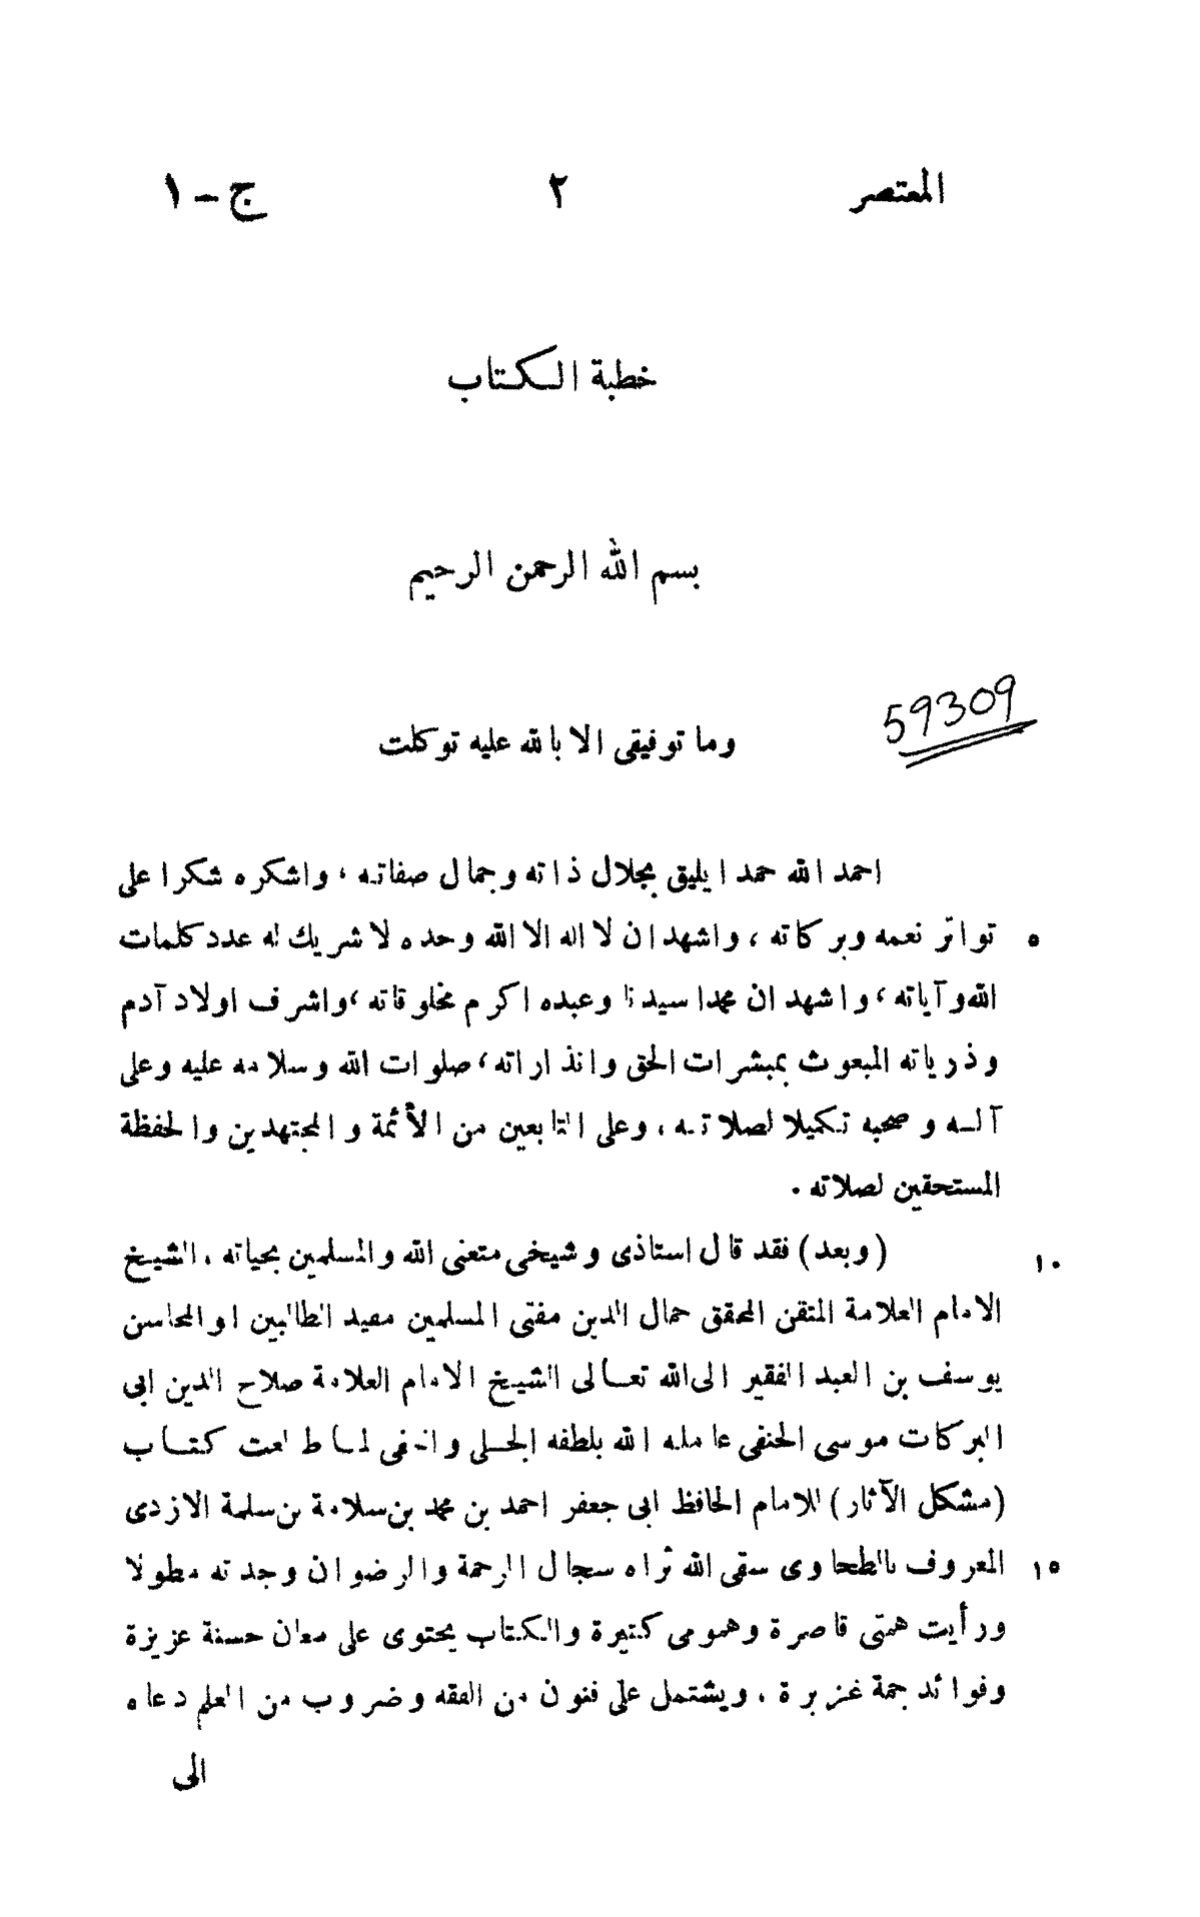 المعتصر ٢ ج - ١
خطبة الكتاب
بسم الله الرحمن الرحيم
59309
وما توفيقى الا بالله عليه توكلت
احمد الله حمدا يليق بجلال ذاته وجمال صفاته ، واشكره شكرا على
٥ تواتر نعمه وبركاته ، واشهد ان لا اله الا الله وحده لا شريك له عدد كلمات
الله وآياته ، واشهد ان محمدا سيدنا وعبده اكرم مخلوقاته ، واشرف اولاد آدم
وذرياته المبعوث بمبشرات الحق وانذاراته ، صلوات الله وسلامه عليه وعلى
آله وصحبه تكميلا لصلاته ، وعلى التابعين من الأئمة والمجتهدين والحفظة
المستحقين لصلاته .
١٠ (وبعد) فقد قال استاذى وشيخى متعنى الله والمسلمين بحياته ، الشيخ
الامام العلامة المتقن المحقق جمال الدين مفتى المسلمين مفيد الطالبين ابو المحاسن
يوسف بن العبد الفقير الى الله تعالى الشيخ الامام العلامة صلاح الدين ابى
البركات موسى الحنفى عامله الله بلطفه الجلى والخفى لما طالعت كتاب
(مشكل الآثار) للامام الحافظ ابى جعفر احمد بن محمد بن سلامة بن سلمة الازدى
١٥ المعروف بالطحاوى سقى الله ثراه سجال الرحمة والرضوان وجدته مطولا
ورأيت همتى قاصرة وهمومى كثيرة والكتاب يحتوى على معان حسنة عزيزة
وفوائد جمة غزيرة ، ويشتمل على فنون من الفقه وضروب من العلم دعاه
الى